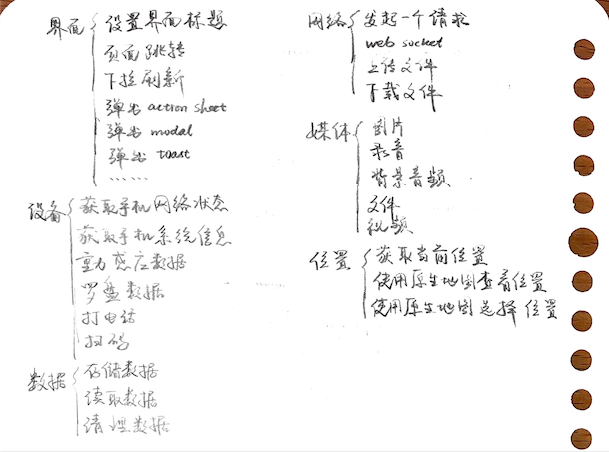 界面
设置界面标题
页面跳转
下拉刷新
弹出 action sheet
弹出 modal
弹出 toast
……
设备
获取手机网络状态
获取手机系统信息
重力感应数据
罗盘数据
打电话
扫码
数据
存储数据
读取数据
清理数据
网络
发起一个请求
web socket
上传文件
下载文件
媒体
图片
录音
背景音频
文件
视频
位置
获取当前位置
使用原生地图查看位置
使用原生地图选择位置